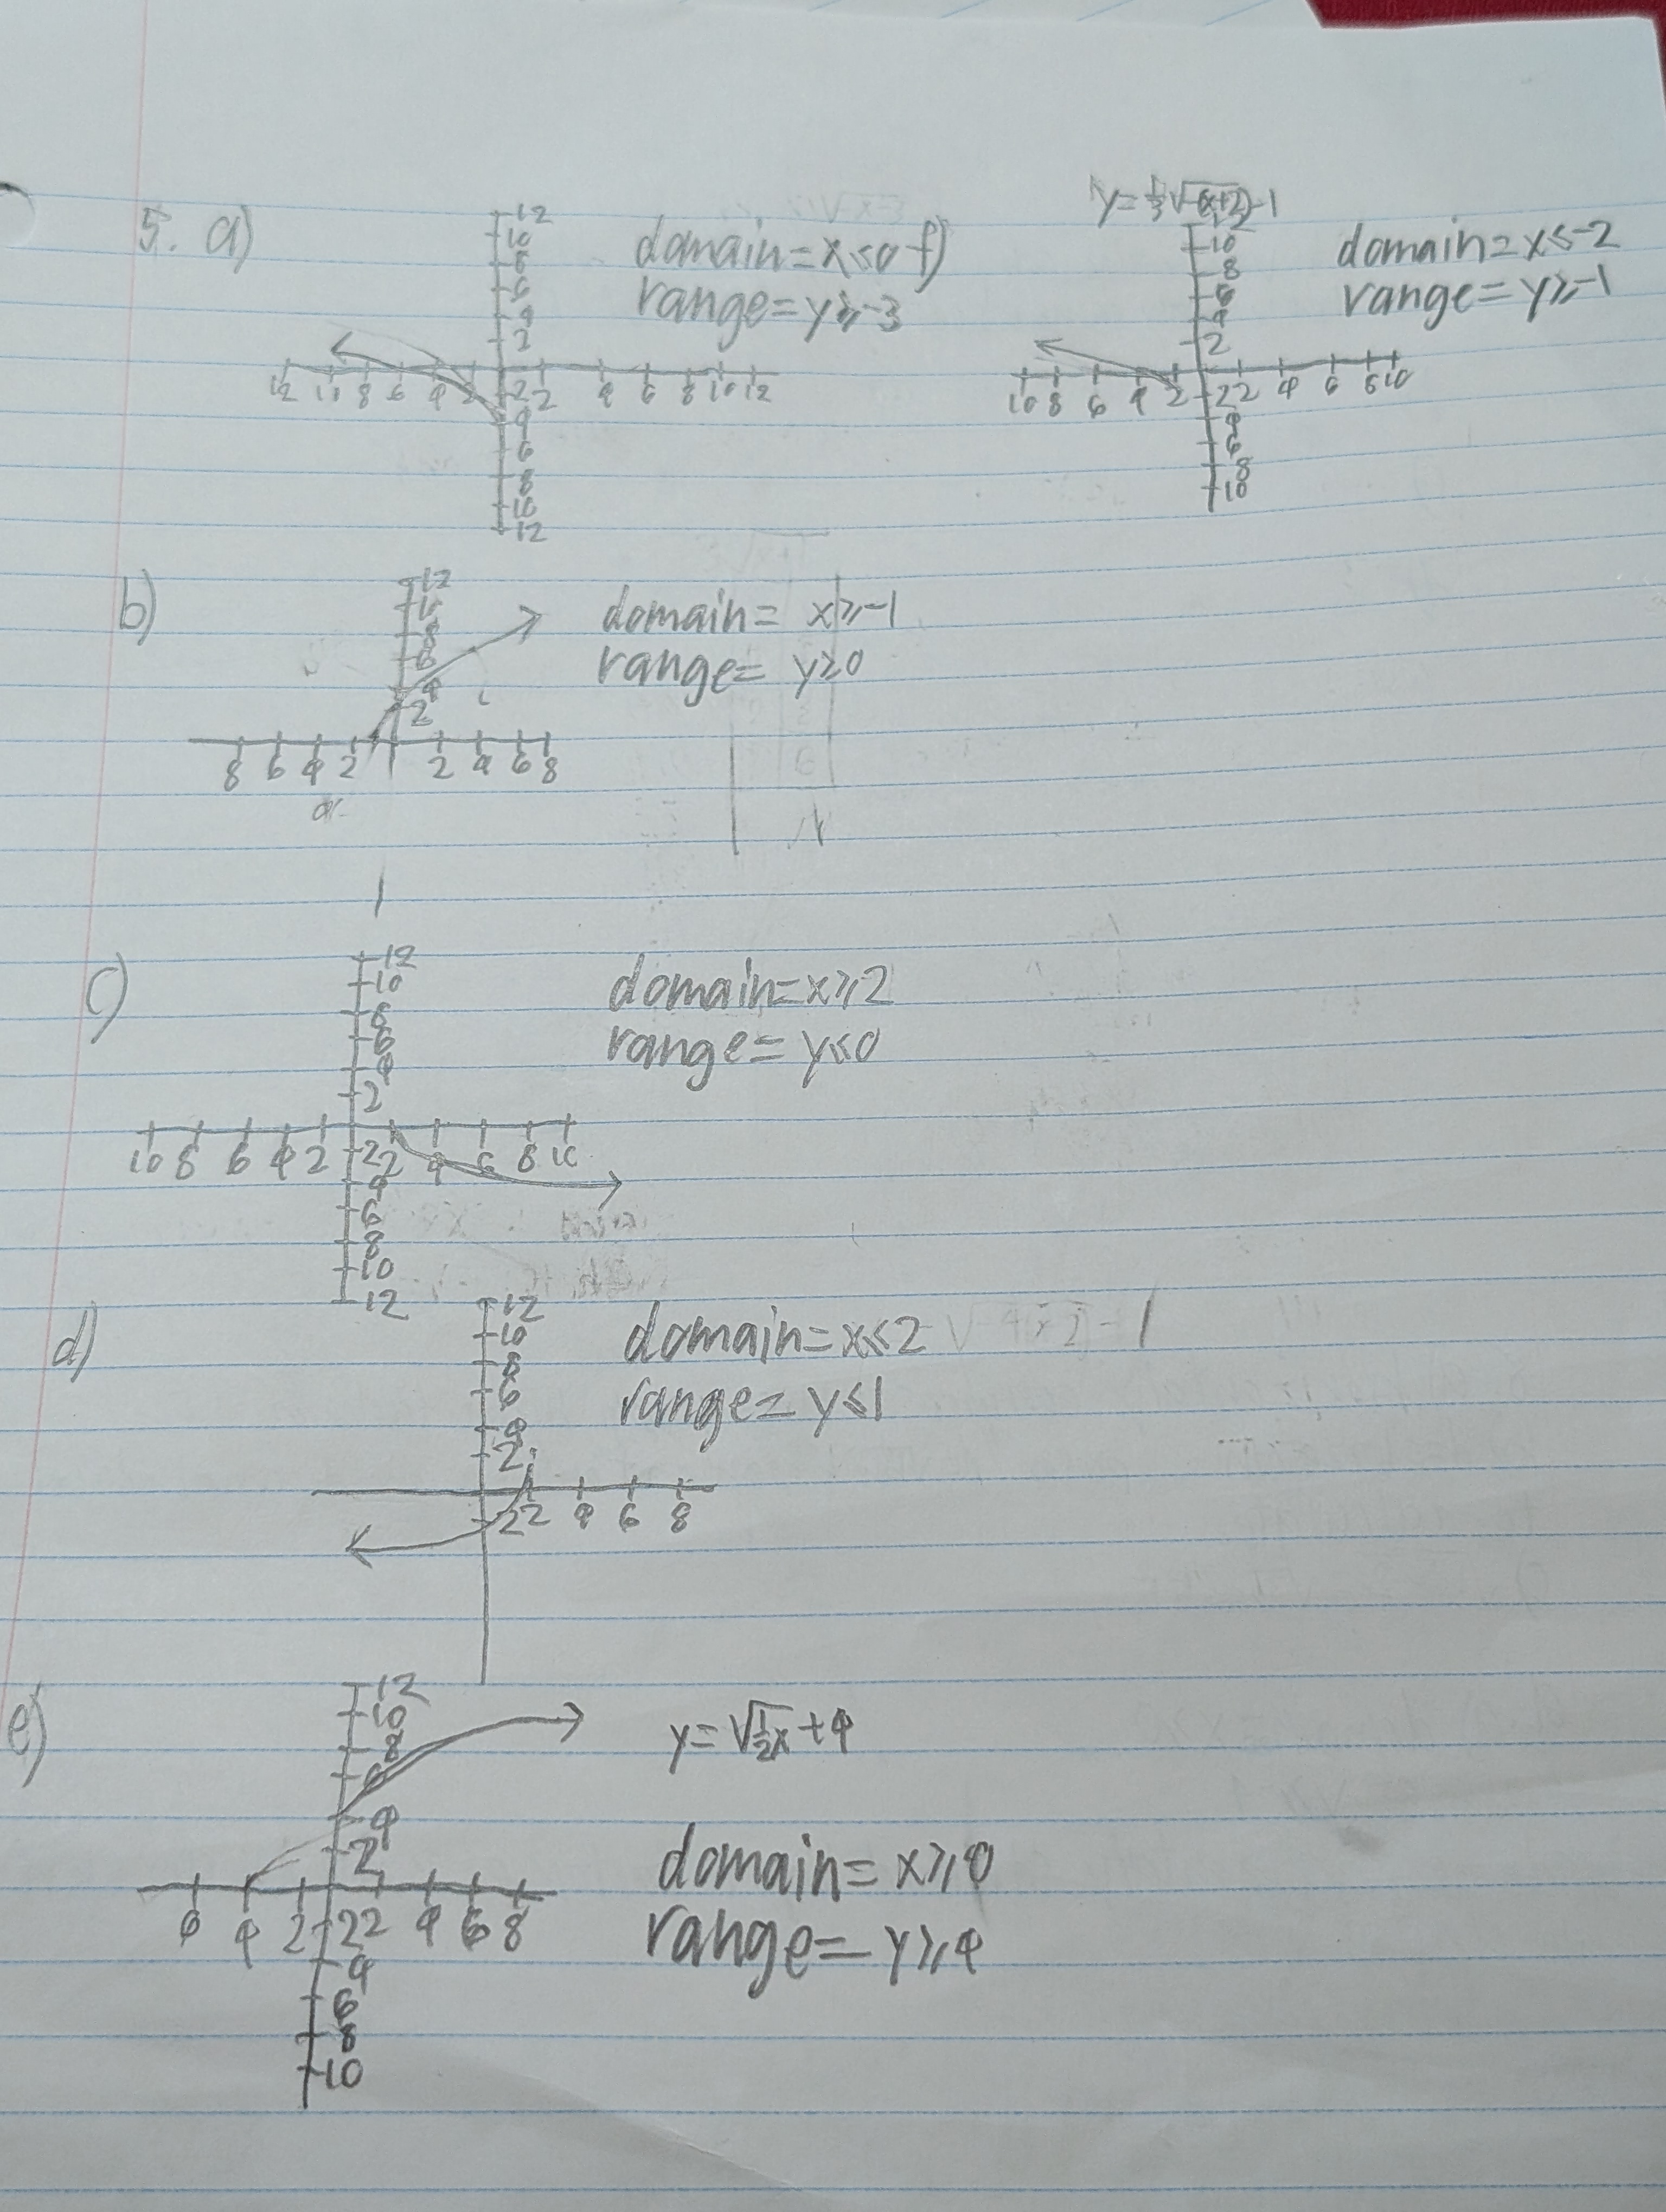 5. a)
12
10
8
6
4
2
12 10 8 6 4 2 2 2 4 6 8 10 12
4
6
8
10
12
domain = x ≤ 0
range = y ≥ -3
f)
y = 1/3√-(x+2) - 1
12
10
8
6
4
2
10 8 6 4 2 2 2 4 6 8 10
4
6
8
10
domain = x ≤ -2
range = y ≥ -1
b)
12
10
8
6
4
2
8 6 4 2 2 4 6 8
domain = x ≥ -1
range = y ≥ 0
c)
12
10
8
6
4
2
10 8 6 4 2 2 2 4 6 8 10
4
6
8
10
12
domain = x ≥ 2
range = y ≤ 0
d)
12
10
8
6
4
2
2 2 4 6 8
domain = x ≤ 2
range = y ≤ 1
e)
12
10
8
6
4
2
6 4 2 2 2 4 6 8
4
6
8
10
y = √1/2x + 4
domain = x ≥ 0
range = y ≥ 4